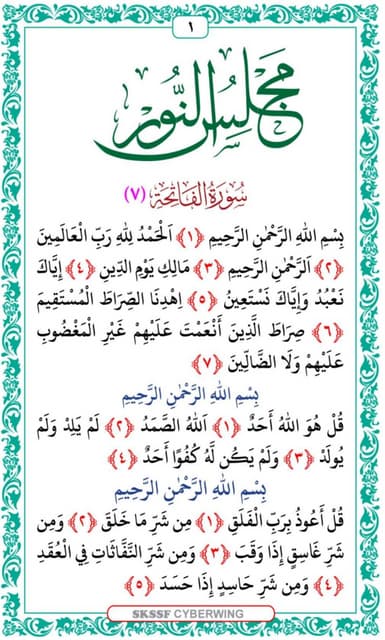 ١
مجلس النُّور
سُورَةُ الفَاتِحَة (٧)
بِسْمِ اللهِ الرَّحْمٰنِ الرَّحِيمِ ﴿١﴾ اَلْحَمْدُ لِلهِ رَبِّ الْعَالَمِينَ
﴿٢﴾ اَلرَّحْمٰنِ الرَّحِيمِ ﴿٣﴾ مَالِكِ يَوْمِ الدِّينِ ﴿٤﴾ إِيَّاكَ
نَعْبُدُ وَإِيَّاكَ نَسْتَعِينُ ﴿٥﴾ اِهْدِنَا الصِّرَاطَ الْمُسْتَقِيمَ
﴿٦﴾ صِرَاطَ الَّذِينَ أَنْعَمْتَ عَلَيْهِمْ غَيْرِ الْمَغْضُوبِ
عَلَيْهِمْ وَلَا الضَّالِّينَ ﴿٧﴾
بِسْمِ اللهِ الرَّحْمٰنِ الرَّحِيمِ
قُلْ هُوَ اللهُ أَحَدٌ ﴿١﴾ اَللهُ الصَّمَدُ ﴿٢﴾ لَمْ يَلِدْ وَلَمْ
يُولَدْ ﴿٣﴾ وَلَمْ يَكُن لَّهُ كُفُوًا أَحَدٌ ﴿٤﴾
بِسْمِ اللهِ الرَّحْمٰنِ الرَّحِيمِ
قُلْ أَعُوذُ بِرَبِّ الْفَلَقِ ﴿١﴾ مِن شَرِّ مَا خَلَقَ ﴿٢﴾ وَمِن
شَرِّ غَاسِقٍ إِذَا وَقَبَ ﴿٣﴾ وَمِن شَرِّ النَّفَّاثَاتِ فِي الْعُقَدِ
﴿٤﴾ وَمِن شَرِّ حَاسِدٍ إِذَا حَسَدَ ﴿٥﴾
SKSSF CYBERWING